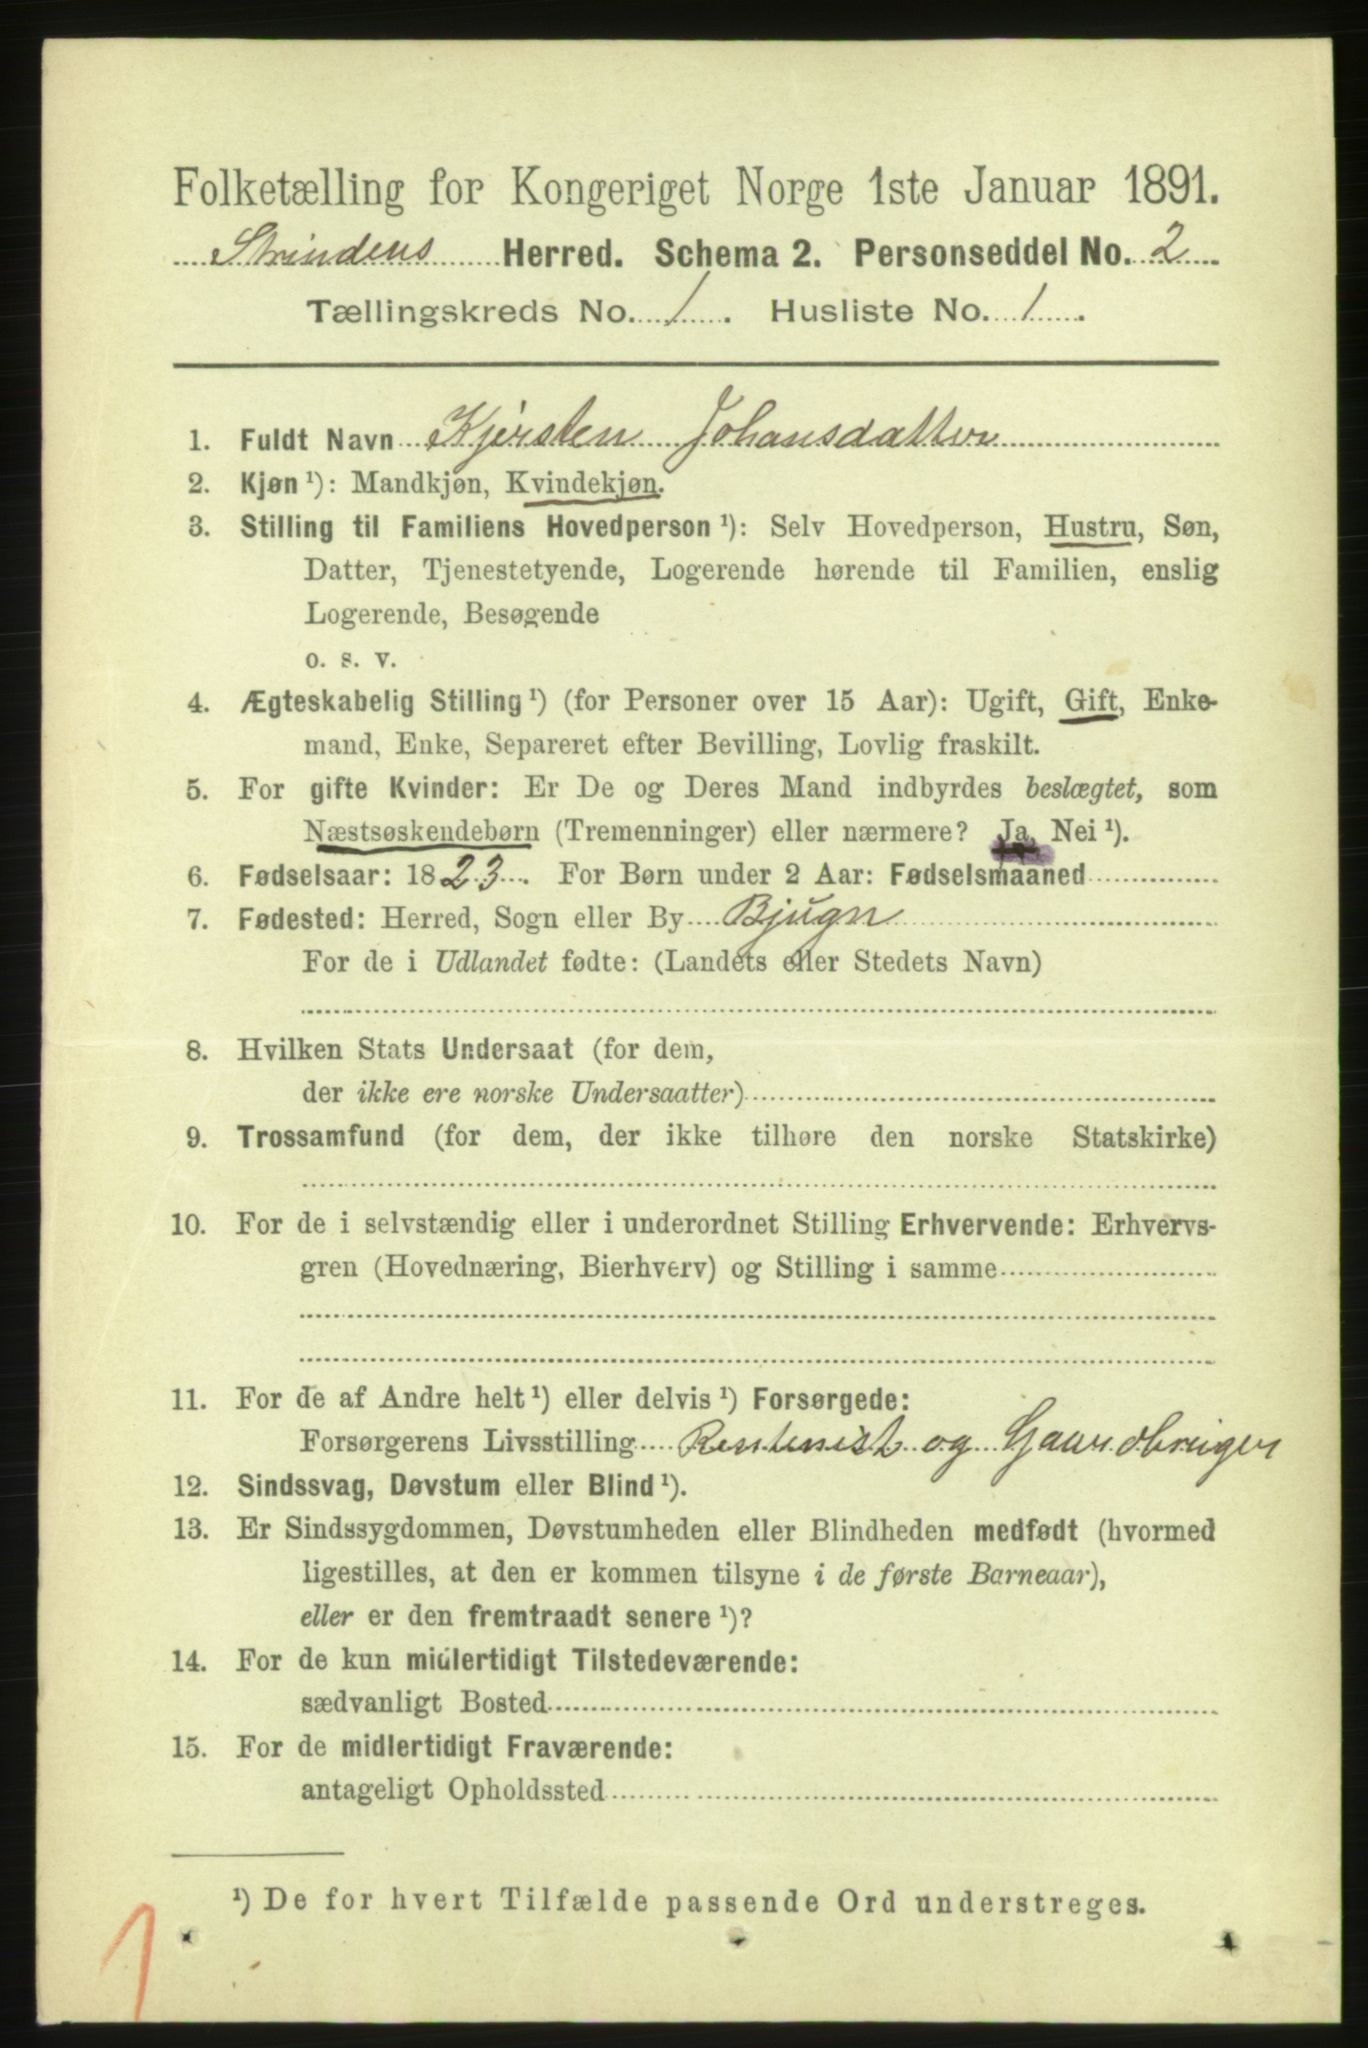 Folketælling for Kongeriget Norge 1ste Januar 1891.
Strindens Herred. Schema 2. Personseddel No. 2
Tællingskreds No. 1. Husliste No. 1.
1. Fuldt Navn Kjersten Johansdatter
2. Kjøn ¹): Mandkjøn, Kvindekjøn.
3. Stilling til Familiens Hovedperson ¹): Selv Hovedperson, Hustru, Søn,
Datter, Tjenestetyende, Logerende hørende til Familien, enslig
Logerende, Besøgende
o. s. v.
4. Ægteskabelig Stilling ¹) (for Personer over 15 Aar): Ugift, Gift, Enke-
mand, Enke, Separeret efter Bevilling, Lovlig fraskilt.
5. For gifte Kvinder: Er De og Deres Mand indbyrdes beslægtet, som
Næstsøskendebørn (Tremenninger) eller nærmere? Ja, Nei ¹).
6. Fødselsaar: 1823. For Børn under 2 Aar: Fødselsmaaned
7. Fødested: Herred, Sogn eller By Bjugn
For de i Udlandet fødte: (Landets eller Stedets Navn)
8. Hvilken Stats Undersaat (for dem,
der ikke ere norske Undersaatter)
9. Trossamfund (for dem, der ikke tilhøre den norske Statskirke)
10. For de i selvstændig eller i underordnet Stilling Erhvervende: Erhvervs-
gren (Hovednæring, Bierhverv) og Stilling i samme
11. For de af Andre helt ¹) eller delvis ¹) Forsørgede:
Forsørgerens Livsstilling Rentenist og Gaardbruger
12. Sindssvag, Døvstum eller Blind ¹).
13. Er Sindssygdommen, Døvstumheden eller Blindheden medfødt (hvormed
ligestilles, at den er kommen tilsyne i de første Barneaar),
eller er den fremtraadt senere ¹)?
14. For de kun midlertidigt Tilstedeværende:
sædvanligt Bosted
15. For de midlertidigt Fraværende:
antageligt Opholdssted
¹) De for hvert Tilfælde passende Ord understreges.
1